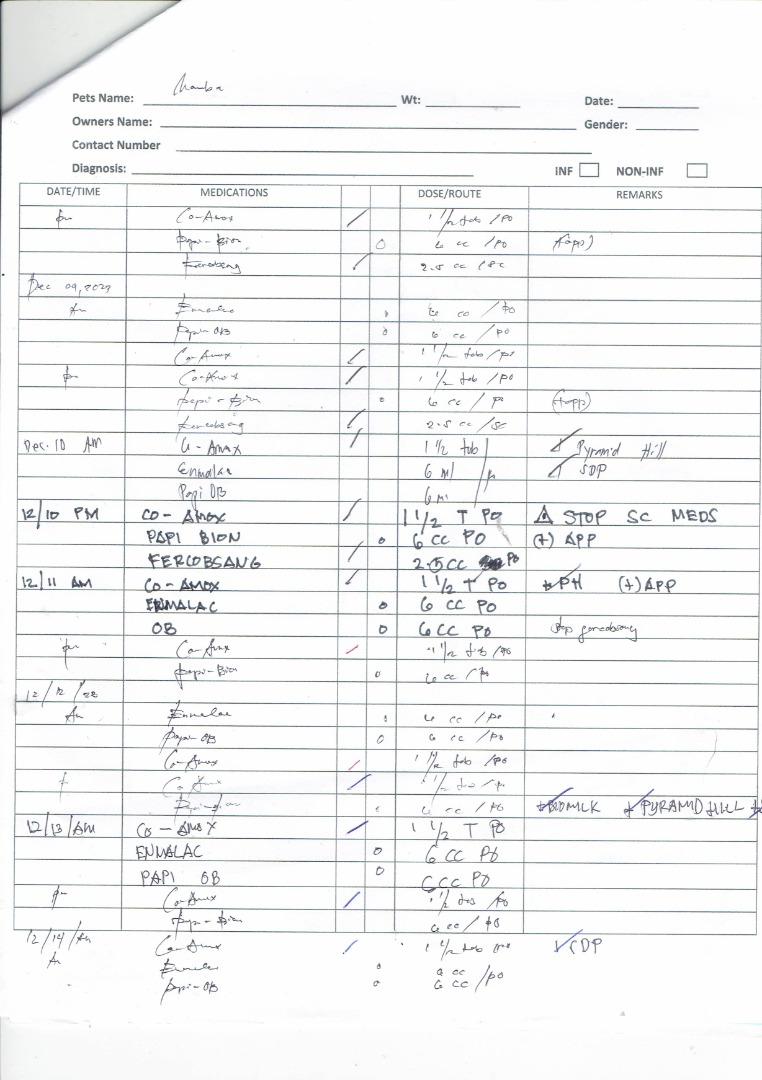 Pets Name: Mamba Wt: Date:
Owners Name: Gender:
Contact Number
Diagnosis: INF NON-INF
DATE/TIME MEDICATIONS DOSE/ROUTE REMARKS
pm Co-Amox 1 1/2 tab /PO
Papi-Bion 6 cc /PO (+app)
2.5 cc /SC
Dec 09,
Am 6 cc /PO
Papi OB 6 cc /PO
Co-Amox 1 1/2 tab /PO
pm Co-Amox 1 1/2 tab /PO
Papi-Bion 6 cc / (+app)
2.5 cc /SC
Dec. 10 AM Co-Amox 1 1/2 tab Pyramid Hill
Enmalac 6 ml SDP
Papi OB 6 ml
12/10 PM CO-AMOX 1 1/2 T PO STOP SC MEDS
PAPI BION 6 CC PO (+) APP
FERCOBSANG 2.5 CC PO
12/11 AM CO-AMOX 1 1/2 T PO PH (+) APP
ENMALAC 6 CC PO
OB 6 CC PO stop
pm Co-Amox 1 1/2 tab /PO
Papi-Bion 6 cc /PO
12/12/22
Am Enmalac 6 cc /PO
Papi OB 6 cc /PO
Co-Amox 1 1/2 tab /PO
Co-Amox 1 1/2 tab
6 cc /PO PYRAMID HILL
12/13/AM CO-AMOX 1 1/2 T PO
ENMALAC 6 CC PO
PAPI OB 6 CC PO
pm Co-Amox 1 1/2 tab /PO
Papi-Bion 6 cc /PO
12/14/Am Co-Amox 1 1/2 tab
Am Enmalac 6 cc /PO
Papi-OB 6 cc